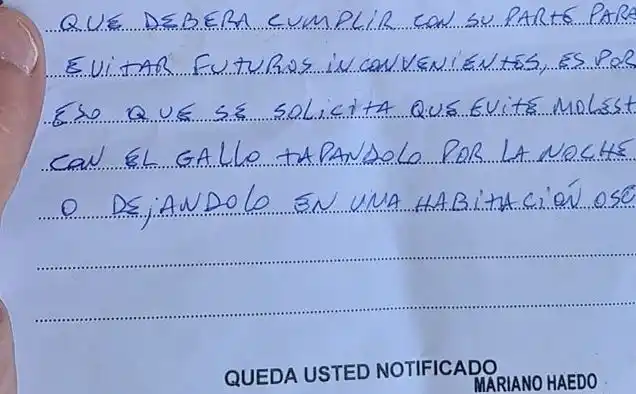 QUE DEBERA CUMPLIR CON SU PARTE PARA
EVITAR FUTUROS INCONVENIENTES, ES POR
ESO QUE SE SOLICITA QUE EVITE MOLEST
CON EL GALLO TAPANDOLO POR LA NOCHE
O DEJANDOLO EN UNA HABITACIÓN OSC
QUEDA USTED NOTIFICADO
MARIANO HAEDO